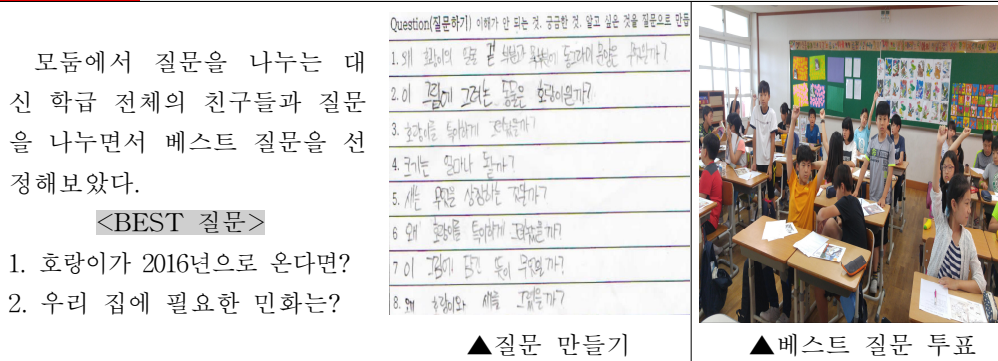 모둠에서 질문을 나누는 대
신 학급 전체의 친구들과 질문
을 나누면서 베스트 질문을 선
정해보았다.
<BEST 질문>
1. 호랑이가 2016년으로 온다면?
2. 우리 집에 필요한 민화는?
Question(질문하기) 이해가 안 되는 것, 궁금한 것, 알고 싶은 것을 질문으로 만듭
1. 왜 호랑이의
2. 이 그림에 그려는 동물은 호랑이일까?
3. 호랑이를 특이하게 그렸을까?
4. 크기는 얼마나 될까?
5. 새는 무엇을 상징하는 것일까?
6 왜 호랑이를 특이하게 그려졌을까?
7 이 그림에 담긴 뜻이 무엇일까?
8. 왜 호랑이와 새를 그렸을까?
▲질문 만들기
▲베스트 질문 투표